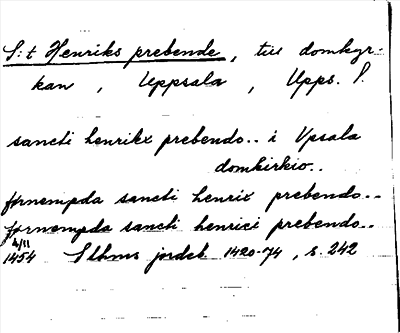 S:t Henriks prebende, till domkyr-
kan, Uppsala, Upps. l.
sancti henrikx prebendo.. i Vpsala
domkirkio..
førnempda sancti henrix prebendo..
førnempda sancti henrici prebendo..
4/11
1454 Sthms jordeb 1420-74, s. 242